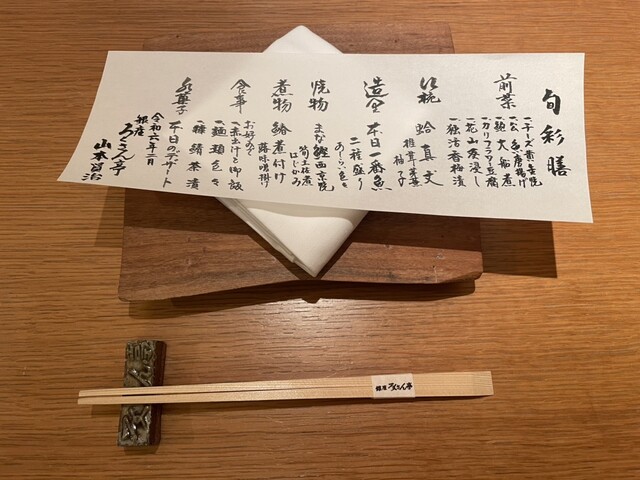 旬彩膳
前菜
一、チーズ黄金焼
一、公魚唐揚げ
一、鮑大船煮
一、カリフラワー豆腐
一、花山葵浸し
一、独活香梅漬
吸椀
蛤真丈
椎茸 菜 柚子
造り
本日一番魚
二種盛り
あしらい色々
焼物
まな鰹西京焼
筍土佐煮
はじかみ
煮物
鰆煮付け
蕗味噌掛け
食事
お好みで
一、赤土汁と御飯
一、麺類色々
一、雑鯖茶漬
水菓子
本日のデザート
令和六年二月
銀座
ろくさん亭
銀座 ろくさん亭